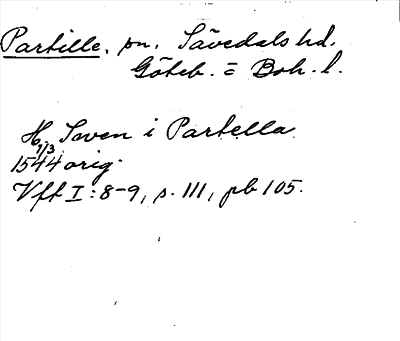 Partille, sn. Sävedals hd.
Göteb. = Boh. l.
H. Swen i Partella
1544 9/3 orig.
Vft I: 8-9, s. 111, pb 105.